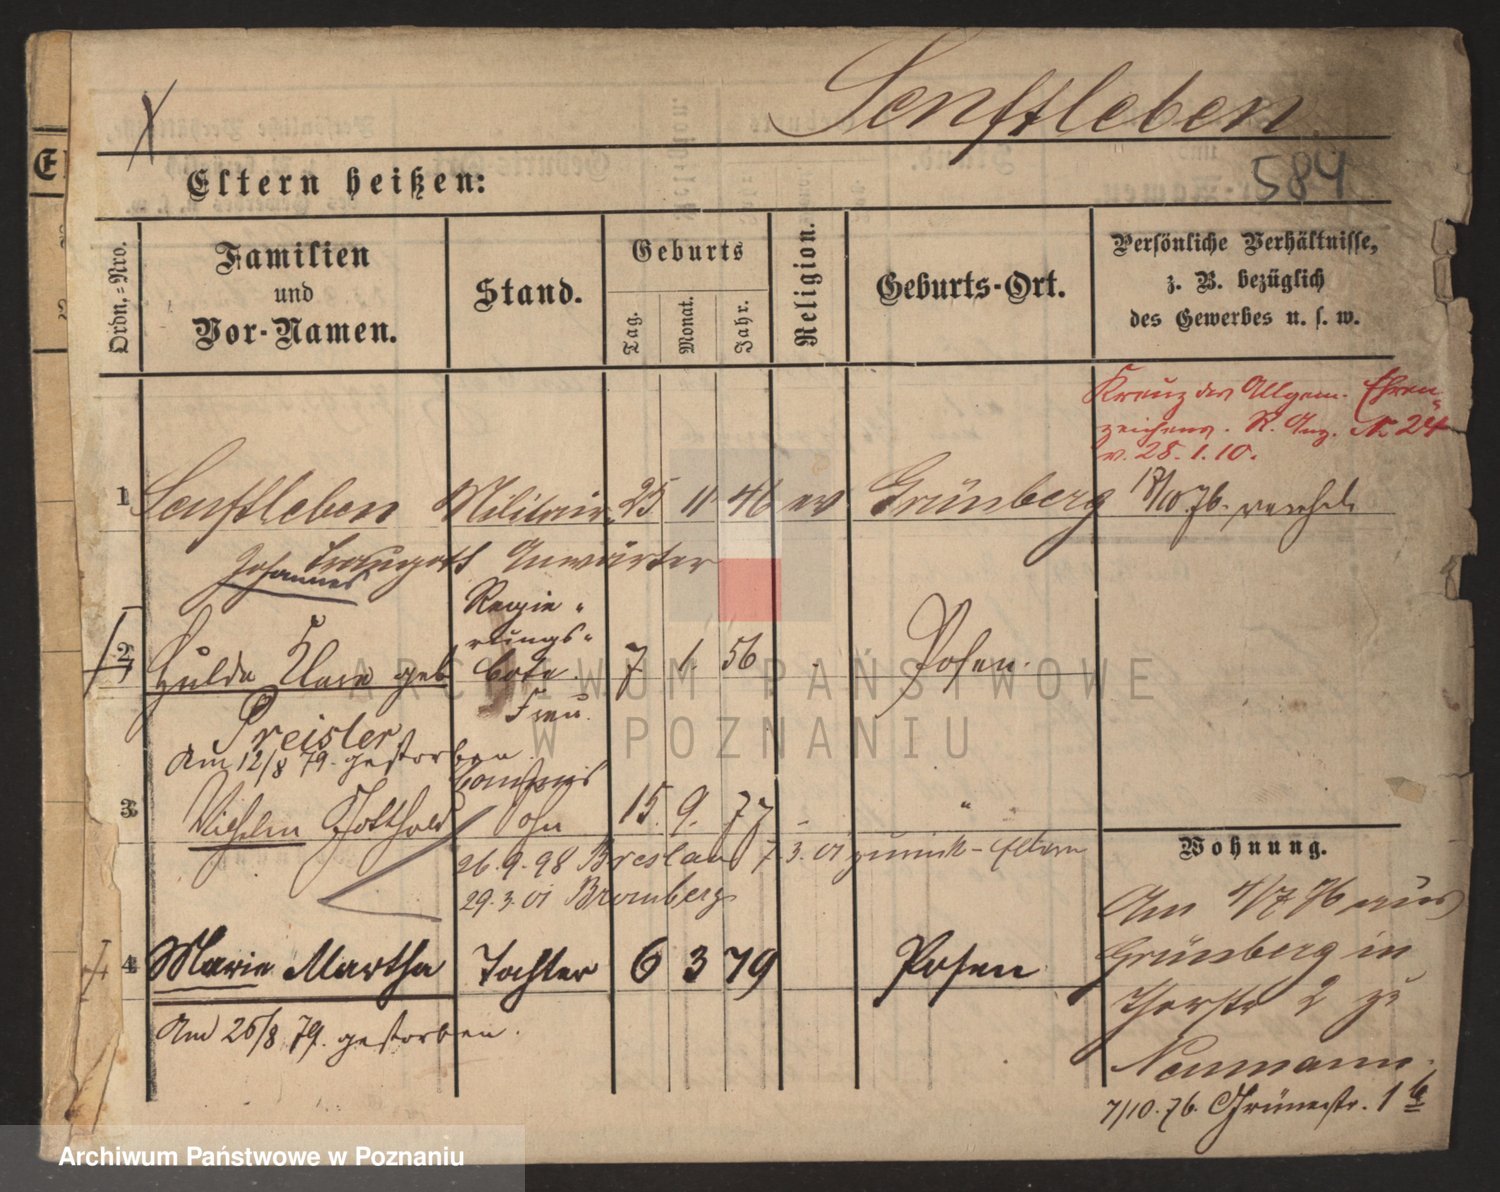 Senftleben
584
Eltern heißen:
Ordn.-Nro.
Familien
und
Vor-Namen.
Stand.
Geburts
Tag.
Monat.
Jahr.
Religion.
Geburts-Ort.
Persönliche Verhältnisse,
z. B. bezüglich
des Gewerbes u. s. w.
Kreuz des Allgem. Ehren-
zeichens. R. Anz. No 24
v. 28. 1. 10.
1 Senftleben Militair 25 11 46 ev Grünberg 17/10 76.
Johannes Traugott Anwärter
Regie-
rungs-
2 Hulda Clara geb bote. 7 1. 56 Posen.
Frau.
Preisler
Am 12/8 79. gestorben
3 Wilhelm Gotthold Sohn 15. 9. 77 "
26.9.98 Breslau 7.3.01 zurück - Eltern
29.3.01 Bromberg
4 Marie Martha Tochter 6 3 79 Posen
Am 26/8 79. gestorben.
Wohnung.
Am 4/7 76 aus
Grünberg in
Thorstr 2 zu
Neumann.
7/10.76. Grünestr. 1
ARCHIWUM PAŃSTWOWE
W POZNANIU
Archiwum Państwowe w Poznaniu